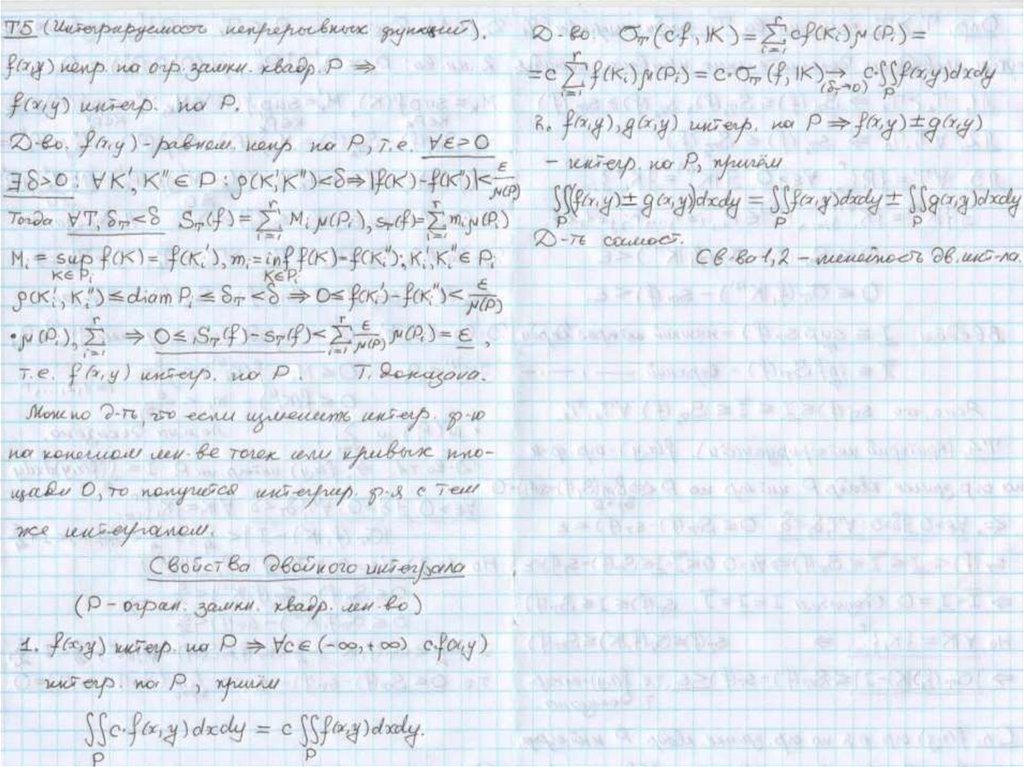 Т5 (Интегрируемость непрерывных функций).
f(x,y) непр. на огр. замкн. квадр. P ⇒
f(x,y) интегр. на P.
Д-во. f(x,y) - равном. непр. на P, т.е. ∀ε>0
∃δ>0 : ∀K', K'' ∈ P : ρ(K',K'')<δ ⇒ |f(K')-f(K'')| < ε/μ(P)
Тогда ∀T, δ_T<δ S_T(f) = ∑_{i=1}^{r} M_i μ(P_i), s_T(f) = ∑_{i=1}^{r} m_i μ(P_i)
M_i = sup_{K∈P_i} f(K) = f(K_i'), m_i = inf_{K∈P_i} f(K) - f(K_i''); K_i', K_i'' ∈ P_i
ρ(K_i', K_i'') ≤ diam P_i ≤ δ_T < δ ⇒ 0 ≤ f(K_i') - f(K_i'') < ε/μ(P)
·μ(P_i), ∑_{i=1}^{r} ⇒ 0 ≤ S_T(f) - s_T(f) < ∑_{i=1}^{r} ε/μ(P) μ(P_i) = ε,
т.е. f(x,y) интегр. на P. Т. доказана.
Можно д-ть, что если изменить интегр. ф-ю
на конечном мн-ве точек или кривых пло-
щади 0, то получится интегрир. ф-я с тем
же интегралом.
Свойства двойного интеграла
(P - огран. замкн. квадр. мн-во)
1. f(x,y) интегр. на P ⇒ ∀c∈(-∞,+∞) cf(x,y)
интегр. на P, причём
∬_P c·f(x,y)dxdy = c ∬_P f(x,y)dxdy.
Д-во σ_T(cf, K) = ∑_{i=1}^{r} cf(K_i)μ(P_i) =
= c ∑_{i=1}^{r} f(K_i)μ(P_i) = c·σ_T(f, K) →_{(δ_T→0)} c·∬_P f(x,y)dxdy
2. f(x,y), g(x,y) интегр. на P ⇒ f(x,y) ± g(x,y)
- интегр. на P, причём
∬_P (f(x,y) ± g(x,y))dxdy = ∬_P f(x,y)dxdy ± ∬_P g(x,y)dxdy
Д-ть самост.
Св-ва 1,2 - линейность дв. инт-ла.